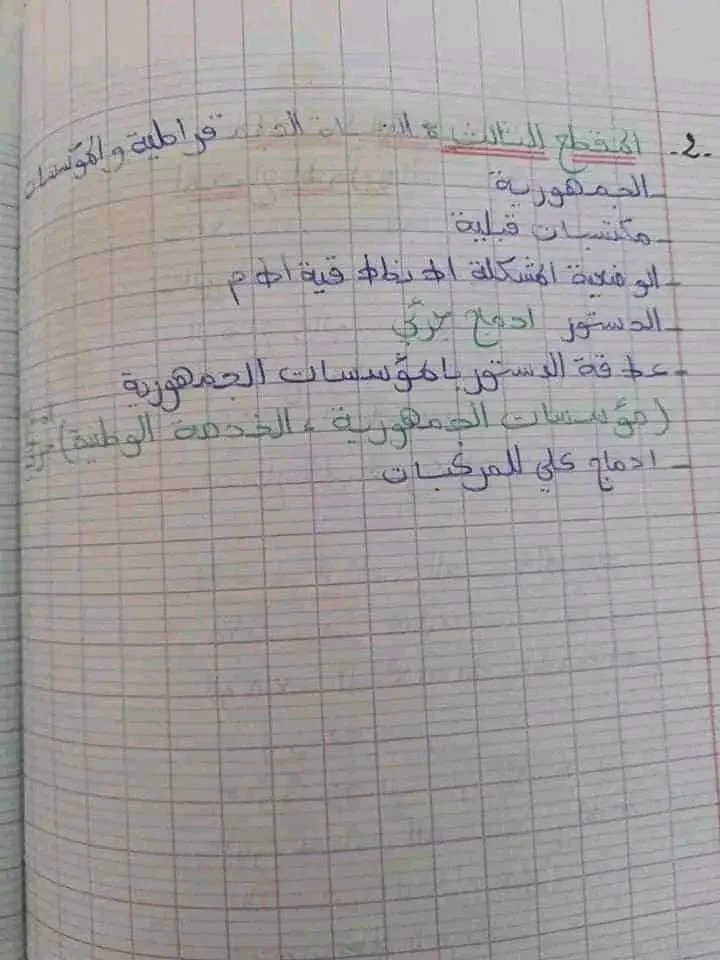 2- المقطع الثالث: الحياة الديمقراطية والمؤسسات
الجمهورية
- مكتسبات قبلية
- الوضعية المشكلة الانطلاقية الام
- الدستور ادماج جزئي
- علاقة الدستور بالمؤسسات الجمهورية
(مؤسسات الجمهورية، الخدمة الوطنية)
- ادماج كلي للمركبات